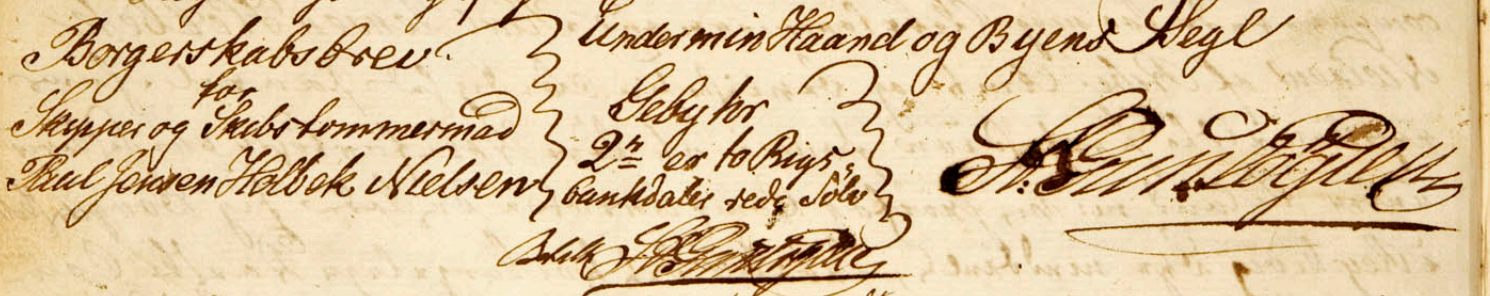 Borgerskabsbrev
for
Skipper og Skibstømmermand
Poul Jensen Holbek Nielsen
Under min Haand og Byens Segl
Gebyhr
2rd er to Rigs-
bankdaler rede Sølv